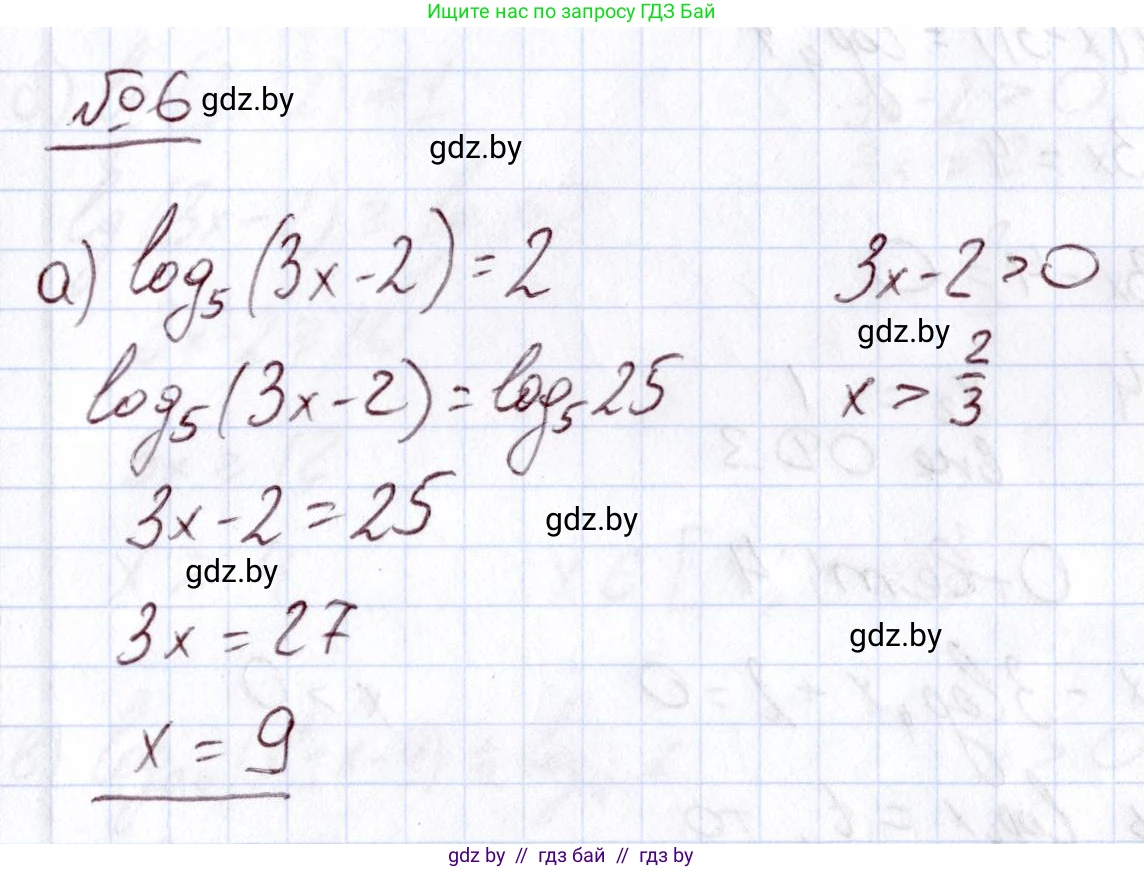 Ищите нас по запросу ГДЗ Бай
№6 gdz.by
gdz.by
а) log₅(3x-2)=2
3x-2>0
gdz.by
log₅(3x-2)=log₅25
x > 2/3
3x-2=25
gdz.by
gdz.by
3x = 27
gdz.by
x = 9
gdz by // гдз бай // гдз by